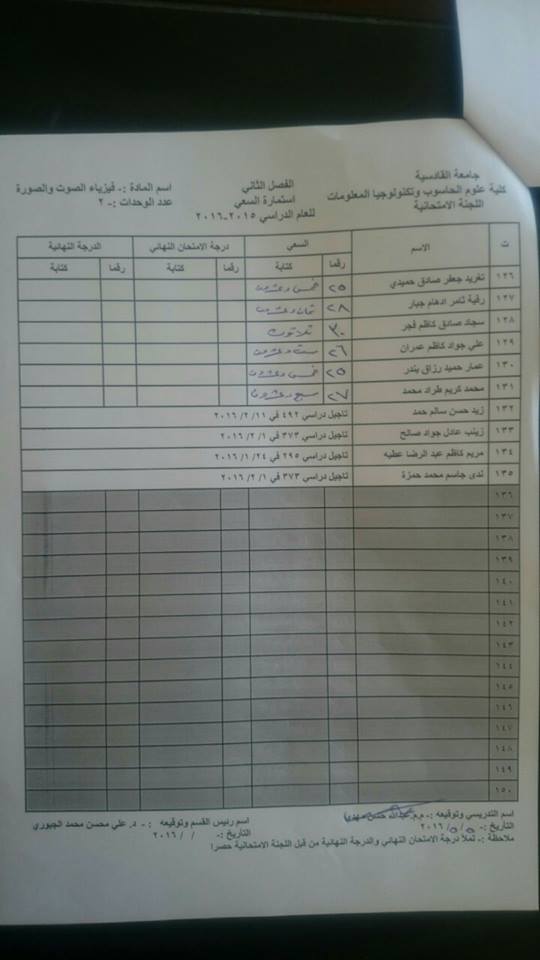 جامعة القادسية
كلية علوم الحاسوب وتكنولوجيا المعلومات
اللجنة الامتحانية
الفصل الثاني
استمارة السعي
للعام الدراسي ٢٠١٥-٢٠١٦
اسم المادة :- فيزياء الصوت والصورة
عدد الوحدات :- ٢
ت الاسم السعي درجة الامتحان النهائي الدرجة النهائية
رقما كتابة رقما كتابة رقما كتابة
١٢٦ تغريد جعفر صادق حميدي ٢٥ خمس وعشرون
١٢٧ رقية ثامر ادهام جبار ٢٨ ثمان وعشرون
١٢٨ سجاد صادق كاظم فجر ٣٠ ثلاثون
١٢٩ علي جواد كاظم عمران ٢٦ ست وعشرون
١٣٠ عمار حميد رزاق بندر ٢٥ خمس وعشرون
١٣١ محمد كريم طراد محمد ٢٧ سبع وعشرون
١٣٢ زيد حسن سالم حمد تاجيل دراسي ٤٩٢ في ١١/ ٢/ ٢٠١٦
١٣٣ زينب عادل جواد صالح تاجيل دراسي ٣٧٣ في ١/ ٢/ ٢٠١٦
١٣٤ مريم كاظم عبد الرضا عطيه تاجيل دراسي ٢٩٥ في ٢٤/ ١/ ٢٠١٦
١٣٥ ندى جاسم محمد حمزة تاجيل دراسي ٣٧٣ في ١/ ٢/ ٢٠١٦
١٣٦
١٣٧
١٣٨
١٣٩
١٤٠
١٤١
١٤٢
١٤٣
١٤٤
١٤٥
١٤٦
١٤٧
١٤٨
١٤٩
١٥٠
اسم التدريسي وتوقيعه :- م.م عبدالله حسن مهدي
التاريخ :- ٥/ ٥/ ٢٠١٦
اسم رئيس القسم وتوقيعه :- د. علي محسن محمد الجبوري
التاريخ :- / / ٢٠١٦
ملاحظة :- تملأ درجة الامتحان النهائي والدرجة النهائية من قبل اللجنة الامتحانية حصرا